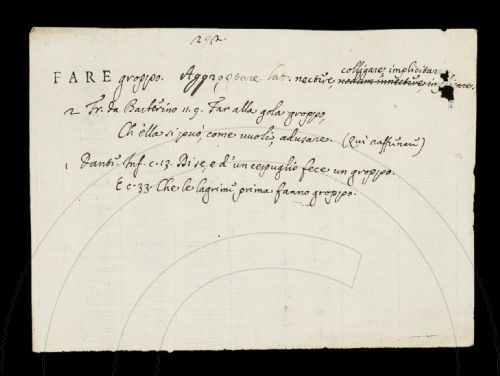 292.
colligare, implicitare
FARE groppo. Aggroppare. Lat. nectere, nodum innectere,
2 Fr. da Barberino 11. 9. Far alla gola groppo,
Ch'ella si può, come vuoli, adusare. (Qui
1 Dante. Inf. c. 13. Di se, e d'un cespuglio fece un groppo.
E c. 33. Che le lagrime prima fanno groppo.